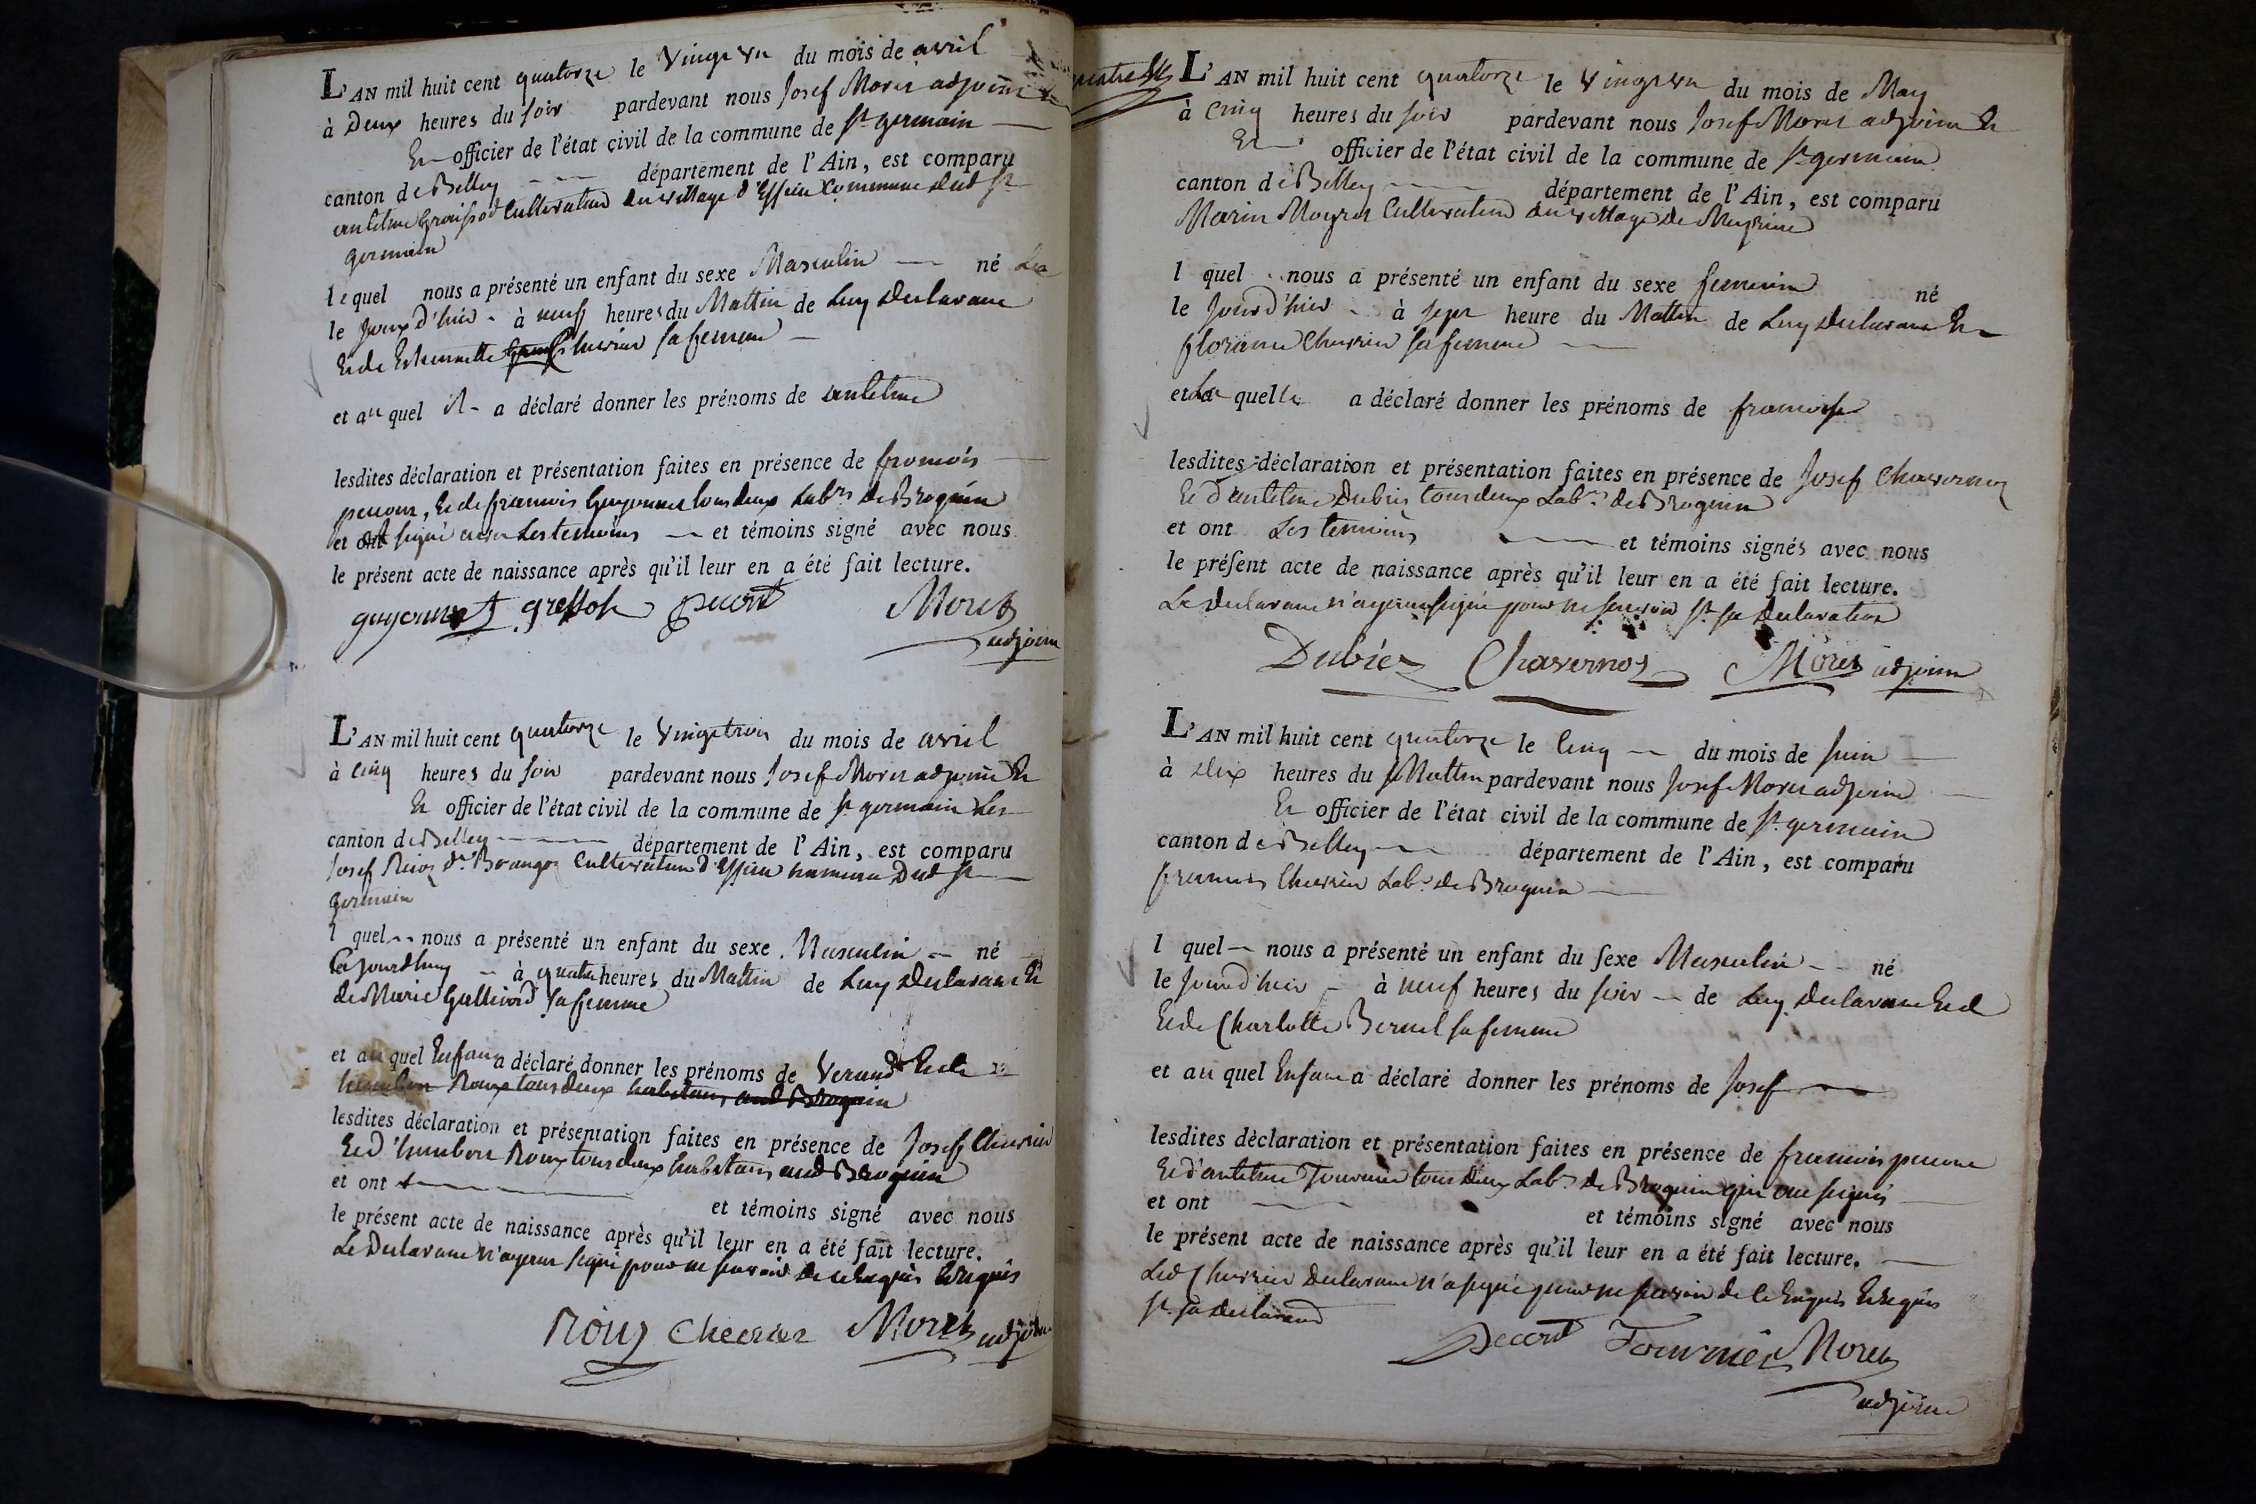 L'AN mil huit cent quatorze le Vingt un du mois de avril
à Deux heures du soir pardevant nous Josef Moret adjoint
Et officier de l'état civil de la commune de St germain
canton de Belley département de l'Ain, est comparu
cultivateur du village d'Essieu Commune dud St
germain
lequel nous a présenté un enfant du sexe Masculin né
le jour d'hier à neuf heures du Mattin de Luy Declarant
Et de Estiennette Chevrier sa femme
et au quel il a déclaré donner les prénoms de antelme
lesdites déclaration et présentation faites en présence de francois
pecout, Et de francois Guyonnet tous deux Labrs de Brognin
et ont signé avec Les temoins et témoins signé avec nous
le présent acte de naissance après qu'il leur en a été fait lecture.
guyonnet pecout Moret
adjoint
L'AN mil huit cent quatorze le Vingt trois du mois de avril
à cinq heures du soir pardevant nous Josef Moret adjoint Et
Et officier de l'état civil de la commune de St germain Les
canton de Belley département de l'Ain, est comparu
Josef Cultivateur d'Essieu commune Dud St
germain
l quel nous a présenté un enfant du sexe Masculin né
Cejourdhuy à quatre heures du Mattin de Luy Declarant Et
de Marie sa femme
et au quel Enfant a déclaré donner les prénoms de
Roux tous deux habitans aud Brognin
lesdites déclaration et présentation faites en présence de Josef Chevrier
Et d'humbert Roux tous deux habitans aud Brognin
et ont et témoins signé avec nous
le présent acte de naissance après qu'il leur en a été fait lecture.
Le Declarant n'ayant signé pour ne savoir de ce Enquis Requis
Roux Chevrier Moret adjoint
L'AN mil huit cent quatorze le Vingt un du mois de May
à cinq heures du soir pardevant nous Josef Moret adjoint Et
Et officier de l'état civil de la commune de St germain
canton de Belley département de l'Ain, est comparu
Marin Cultivateur du village de
l quel nous a présenté un enfant du sexe feminin né
le Jour d'hier à sept heure du Mattin de Luy Declarant Et
florance Chevrier sa femme
et La quelle a déclaré donner les prénoms de francoise
lesdites déclaration et présentation faites en présence de Josef Chavornoz
Et d'antelme Dubiez tous deux Labrs de Brognin
et ont Les temoins et témoins signés avec nous
le présent acte de naissance après qu'il leur en a été fait lecture.
Le Declarant n'ayant signé pour ne savoir St sa Declaration
Dubiez Chavornoz Moret adjoint
L'AN mil huit cent quatorze le Cinq du mois de Juin
à Dix heures du Mattin pardevant nous Josef Moret adjoint
Et officier de l'état civil de la commune de St germain
canton de Belley département de l'Ain, est comparu
francois Chevrier Labr de Brognin
l quel nous a présenté un enfant du sexe Masculin né
le Jour d'hier à neuf heures du soir de Luy Declarant Et d
Et de Charlotte Bernel sa femme
et au quel Enfant a déclaré donner les prénoms de Josef
lesdites déclaration et présentation faites en présence de francois pecout
Et d'antelme Fournier tous Deux Labrs de Brognin qui ont signés
et ont et témoins signé avec nous
le présent acte de naissance après qu'il leur en a été fait lecture.
Led Chevrier Declarant n'a signé pour ne savoir de ce Enquis Requis
St sa
pecout Fournier Moret
adjoint